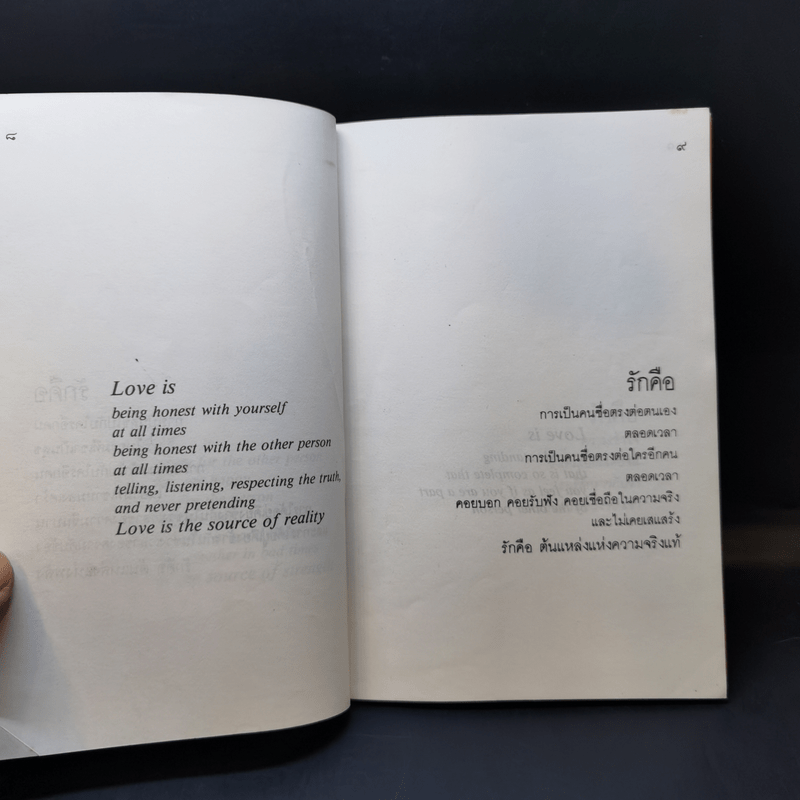 ๘
Love is
being honest with yourself
at all times
being honest with the other person
at all times
telling, listening, respecting the truth,
and never pretending
Love is the source of reality
๙
รักคือ
การเป็นคนซื่อตรงต่อตนเอง
ตลอดเวลา
การเป็นคนซื่อตรงต่อใครอีกคน
ตลอดเวลา
คอยบอก คอยรับฟัง คอยเชื่อถือในความจริง
และไม่เคยเสแสร้ง
รักคือ ต้นแหล่งแห่งความจริงแท้